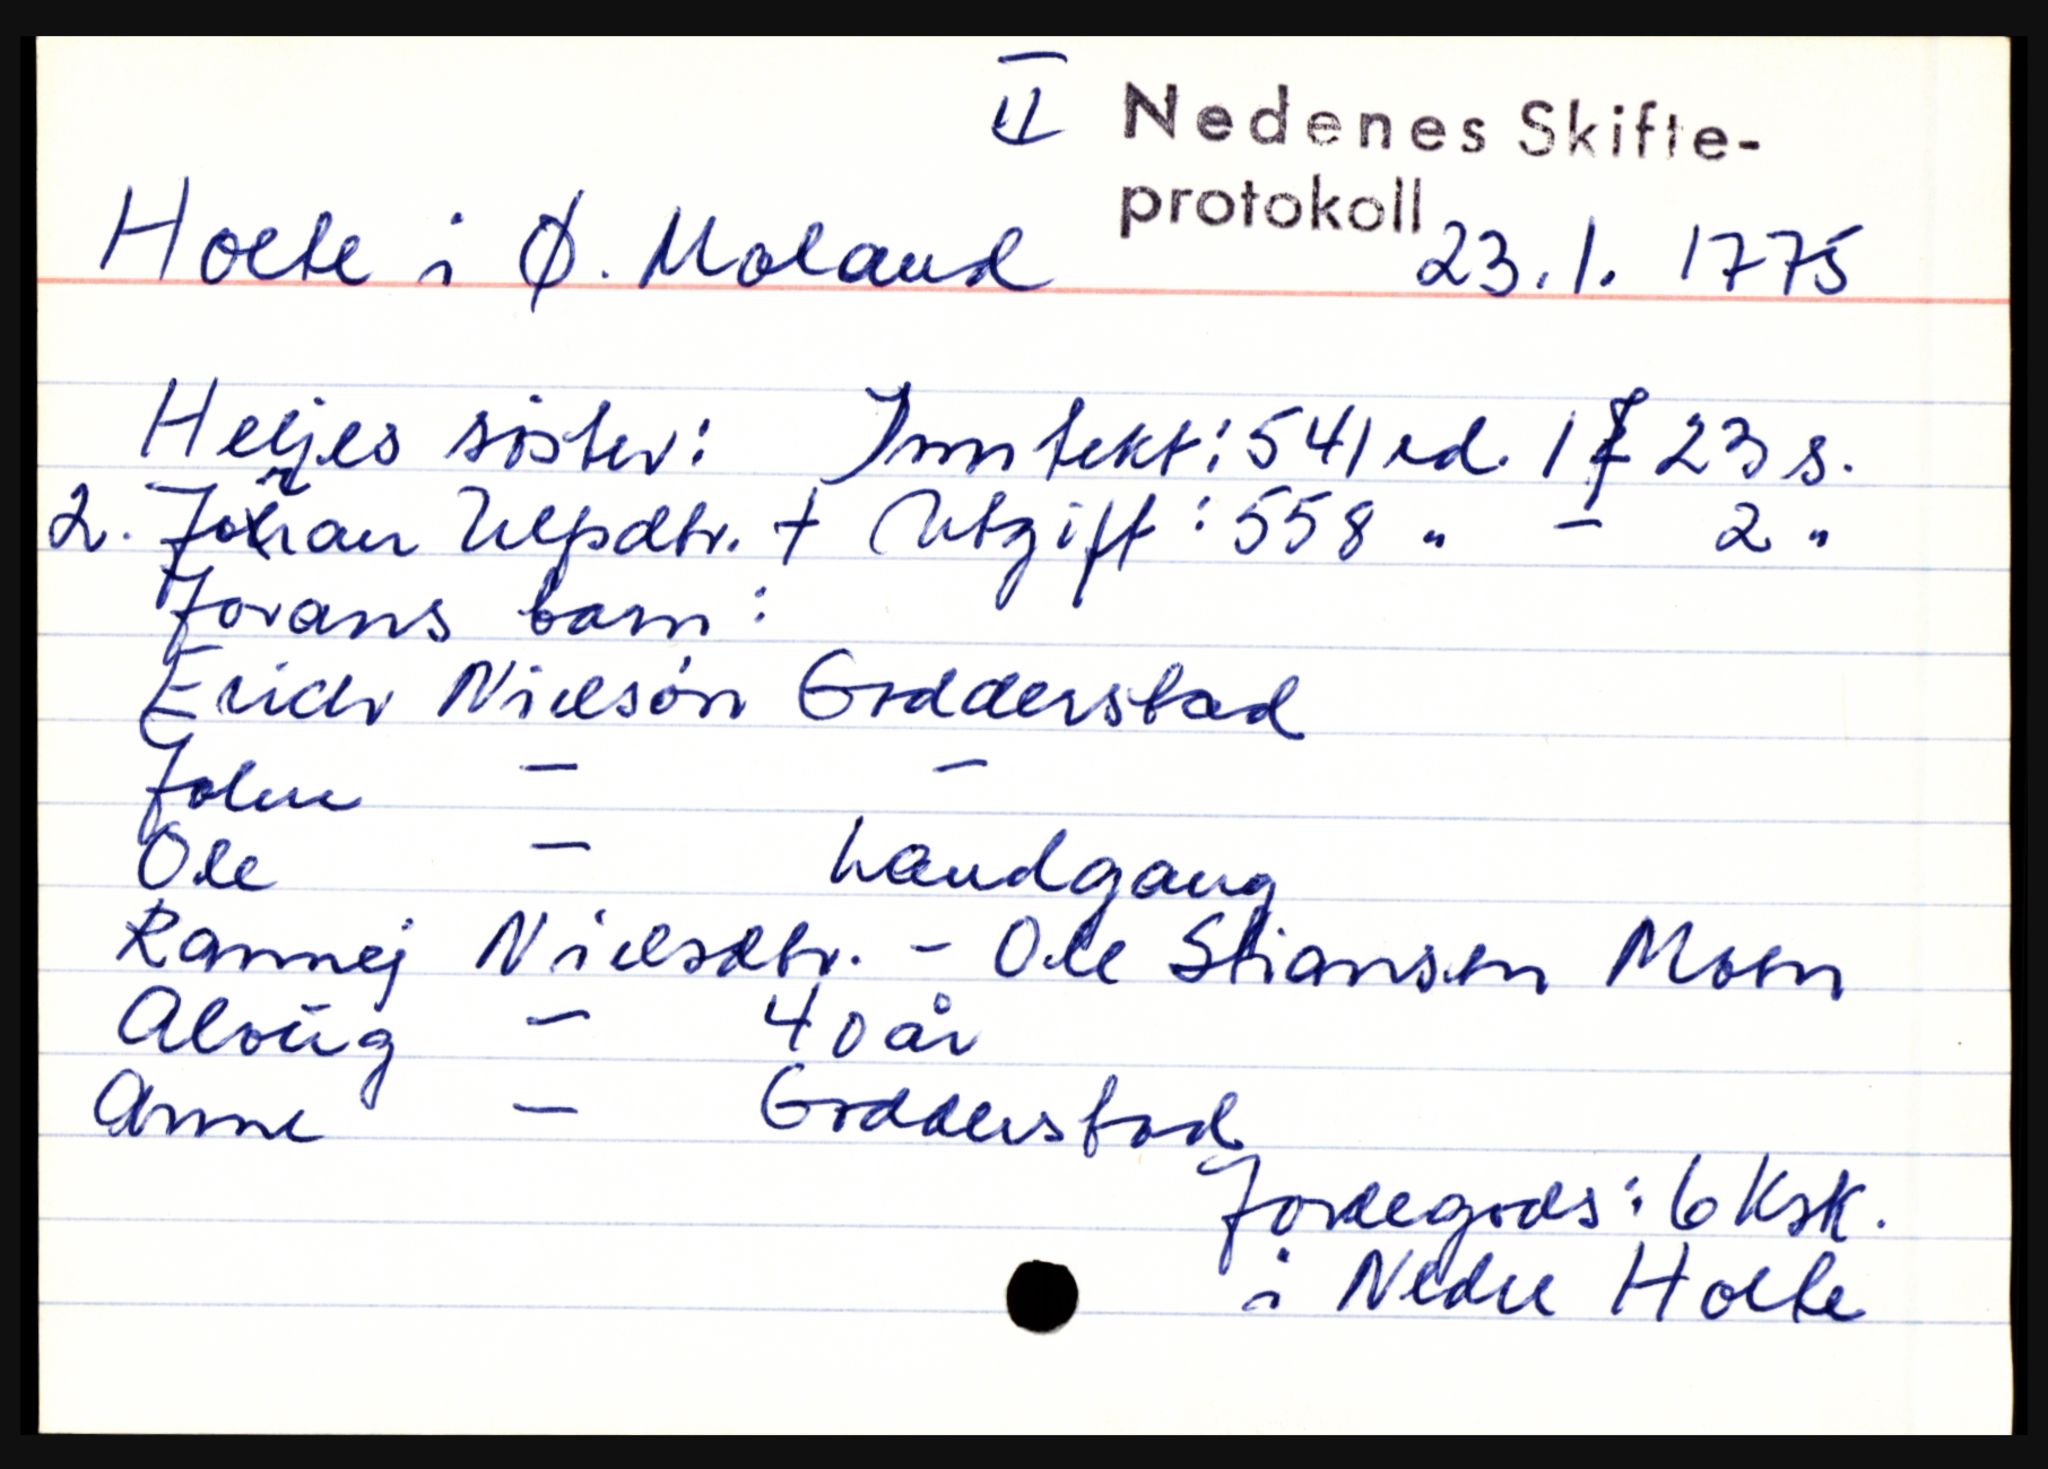 II Nedenes Skifte-
protokoll
Holte i Ø. Moland 23.1. 1775
Heljes söster: Inntekt: 541 rd. 1 23 s.
2. Joran Ulfsdtr. + Utgift: 558 " - 2 "
Jorans barn:
Erich Nielsön Godderstad
John - -
Ole - Landgang
Rannej Nielsdtr. - Ole Stiansen Moen
Aloüg - 40 år
Anne - Godderstad
Jordegods: 6 Ksk.
i Nedre Holte